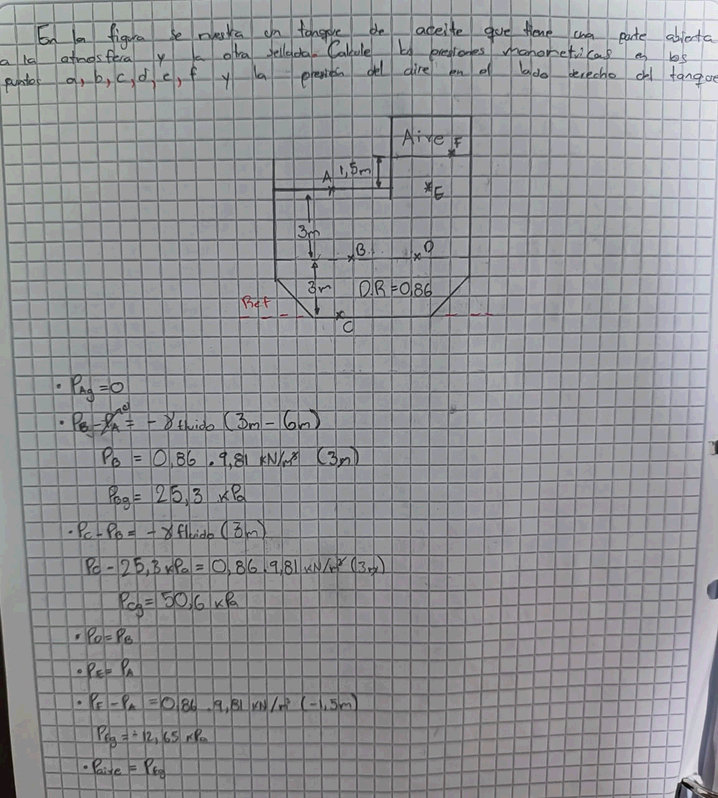 En la figura se muestra un tanque de aceite que tiene una parte abierta
a la atmosfera y la otra sellada. Calcule las presiones manometricas en los
puntos a, b, c, d, e, f y la presión del aire en el lado derecho del tanque
Aire F
A 1,5m
*E
3m
B D
3m D.R=0,86
Ref
C
• PAg=0
• PB-PA=-γfluido (3m-6m)
PB = 0,86 . 9,81 kN/m³ (3m)
PBg= 25,3 kPa
• PC-PB= -γfluido (3m)
PC - 25,3 kPa = 0,86 . 9,81 kN/m³ (3m)
PCg= 50,6 kPa
• PD=PB
• PE= PA
• PF-PA =0,86 . 9,81 kN/m³ (-1,5m)
PFg=-12,65 kPa
• Paire = PFg